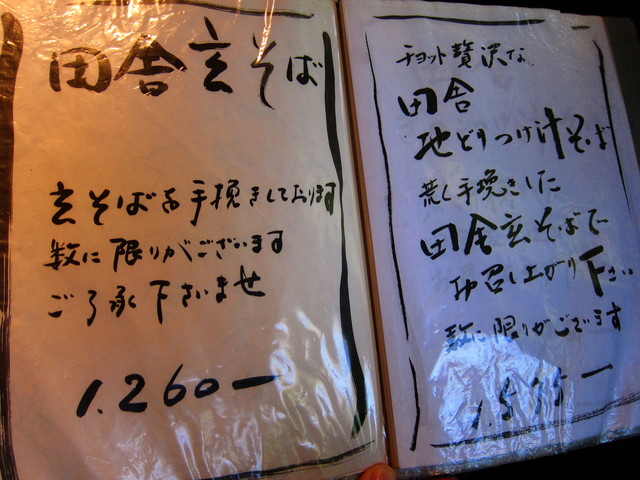 田舎玄そば
玄そばを手挽きしております
数に限りがございます
ご了承下さいませ
1.260ー
チョット贅沢な
田舎
地どりつけ汁そば
荒く手挽きした
田舎玄そばで
お召し上がり下さい
数に限りがございます